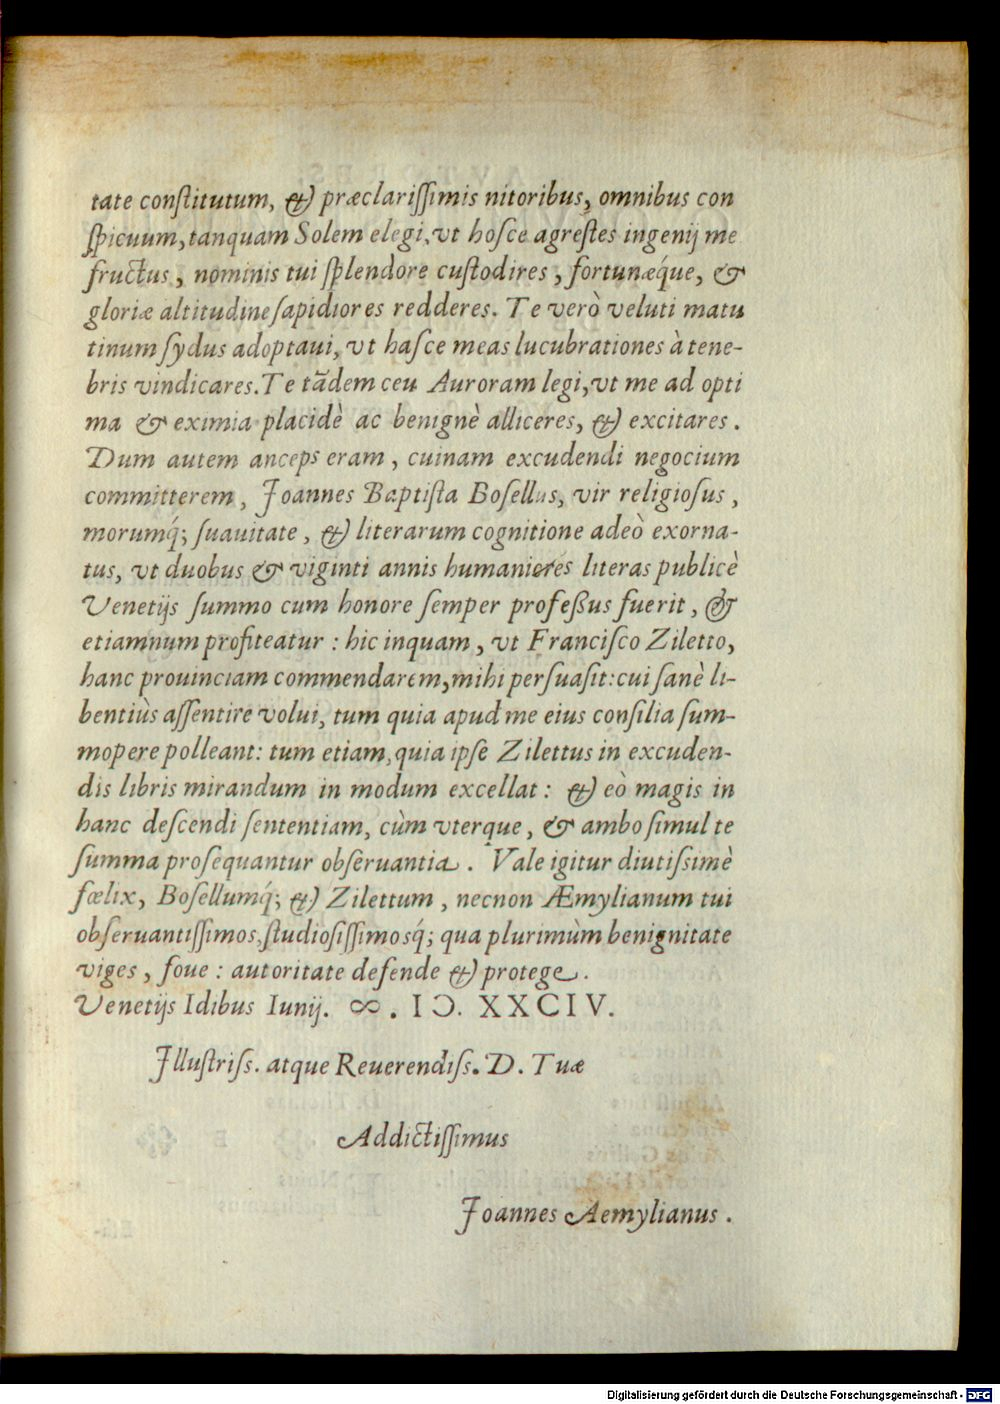 tate conſtitutum, & præclariſſimis nitoribus, omnibus con
ſpicuum, tanquam Solem elegi, vt hoſce agreſtes ingenij me
fructus, nominis tui ſplendore cuſtodires, fortunæq́ue, &
gloriæ altitudine ſapidiores redderes. Te verò veluti matu
tinum ſydus adoptaui, vt haſce meas lucubrationes à tene-
bris vindicares. Te tãdem ceu Auroram legi, vt me ad opti
ma & eximia placidè ac benignè alliceres, & excitares.
Dum autem anceps eram, cuinam excudendi negocium
committerem, Joannes Baptiſta Boſellus, vir religioſus,
morumq́; ſuauitate, & literarum cognitione adeò exorna-
tus, vt duobus & viginti annis humaniores literas publicè
Venetijs ſummo cum honore ſemper profeßus fuerit, &
etiamnum profiteatur: hic inquam, vt Franciſco Ziletto,
hanc prouinciam commendarem, mihi perſuaſit: cui ſanè li-
bentiùs aſſentire volui, tum quia apud me eius conſilia ſum-
mopere polleant: tum etiam, quia ipſe Zilettus in excuden-
dis libris mirandum in modum excellat: & eò magis in
hanc deſcendi ſententiam, cùm vterque, & ambo ſimul te
ſumma proſequantur obſeruantia. Vale igitur diutiſsimè
fœlix, Boſellumq́; & Zilettum, necnon Æmylianum tui
obſeruantiſſimos, ſtudioſiſſimosq́; qua plurimùm benignitate
viges, foue: autoritate defende & protege.
Venetijs Idibus Iunij. ∞. IↃ. XXCIV.
Jlluſtriſs. atque Reuerendiſs. D. Tuæ
Addictiſſimus
Joannes Aemylianus.
Digitalisierung gefördert durch die Deutsche Forschungsgemeinschaft - DFG